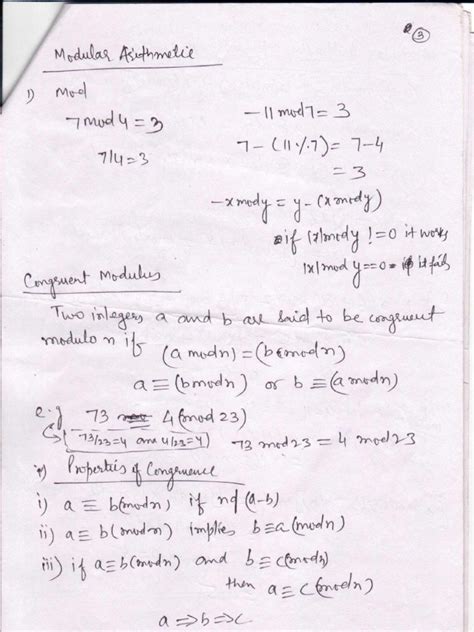 3
Modular Arithmetic
1) Mod
7mod4=3
7/4=3
-11mod7=3
7-(11%7)=7-4
=3
-xmody=y-(xmody)
if |x|mody !=0 it works
|x|mod y==0 - it fails
Congruent Modulus
Two integers a and b are said to be congruent
modulo n if
(a modn)=(b modn)
a≡(bmodn) or b≡(a modn)
e.g 73 4(mod23)
73/23=4 and 4/23=4
73 mod23=4 mod23
Properties of Congruence
i) a≡b(modn) if n (a-b)
ii) a≡b(modn) implies b≡a(modn)
iii) if a≡b(modn) and b≡c(modn)
then a≡c(modn)
a⇒b⇒c